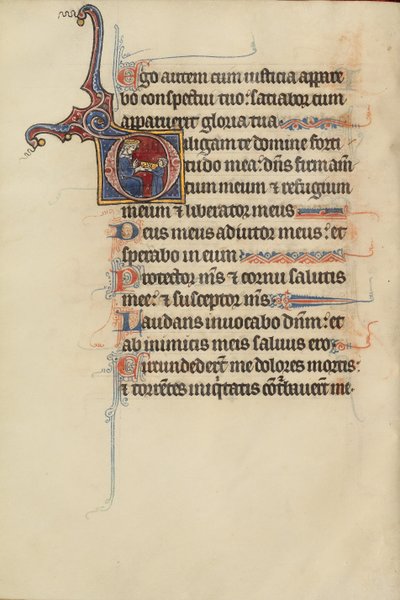 Ego autem cum iusticia appare
bo conspectui tuo: satiabor cum
apparuerit gloria tua
Diligam te domine forti
tudo mea: dñs firmam̄
tum meum ⁊ refugium
meum ⁊ liberator meus
Deus meus adiutor meus: et
sperabo in eum
Protector mr̄s ⁊ cornu salutis
mee: ⁊ susceptor mr̄s
Laudans inuocabo dnm̄: et
ab inimicis meis saluus ero
Circundeder̄t me dolores mortis:
⁊ torrētes iniq̄tatis cōt̄bauer̄t me.